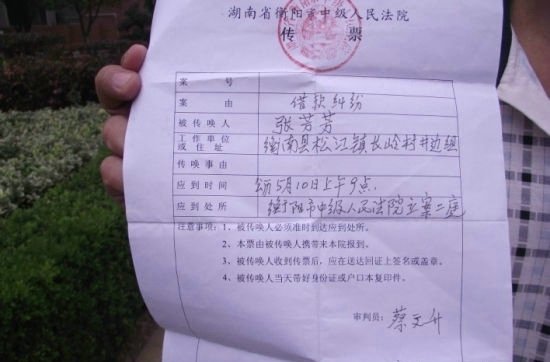 湖南省衡阳市中级人民法院
传 票
案 号
案 由 借款纠纷
被传唤人 张芳芳
工作单位或住址 衡南县松江镇长岭村井边组
传唤事由
应到时间 5月10日上午9点.
应到处所 衡阳市中级人民法院立案二庭
注意事项：1、被传唤人必须准时到达应到处所。
2、本票由被传唤人携带来本院报到。
3、被传唤人收到传票后，应在送达回证上签名或盖章。
4、被传唤人当天带好身份证或户口本复印件。
审判员：蔡文升